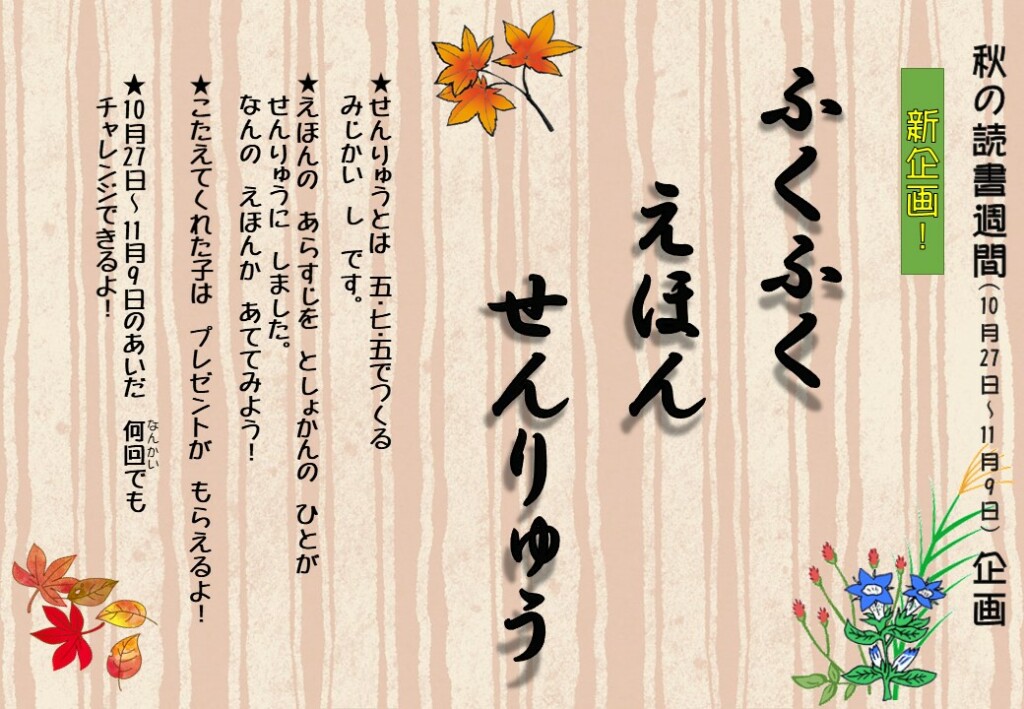 秋の読書週間(10月27日~11月9日)企画
新企画!
ふくふく
えほん
せんりゅう
★せんりゅうとは 五・七・五でつくる
みじかい し です。
★えほんの あらすじを としょかんの ひとが
せんりゅうに しました。
なんの えほんか あててみよう!
★こたえてくれた子は プレゼントが もらえるよ!
★10月27日~11月9日のあいだ 何回でも
なんかい
チャレンジできるよ!